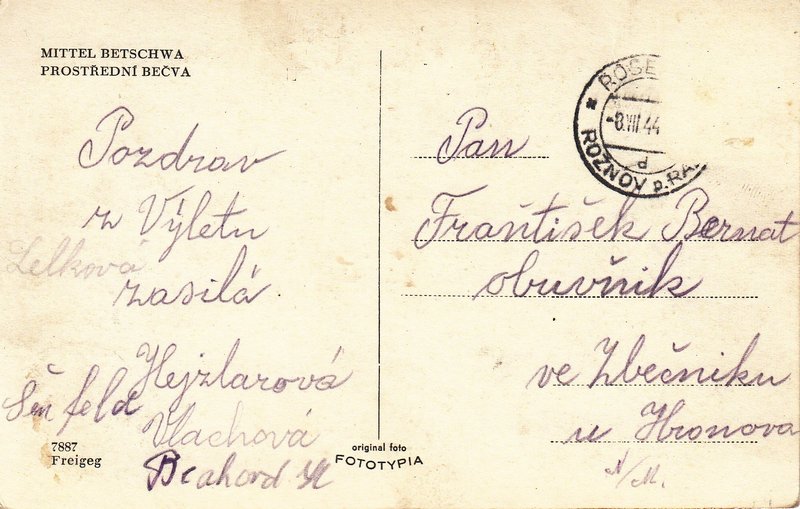 MITTEL BETSCHWA
PROSTŘEDNÍ BEČVA
Pozdrav
z Výletu
Lelková
zasílá
Hejzlarová
Šen feld
Vlachová
7887
Freigeg
original foto
FOTOTYPIA
ROŽNOV p. RA
-8.VIII.44
d
Pan
František Bernat
obuvník
ve Zbečníku
u Hronova
N/M.